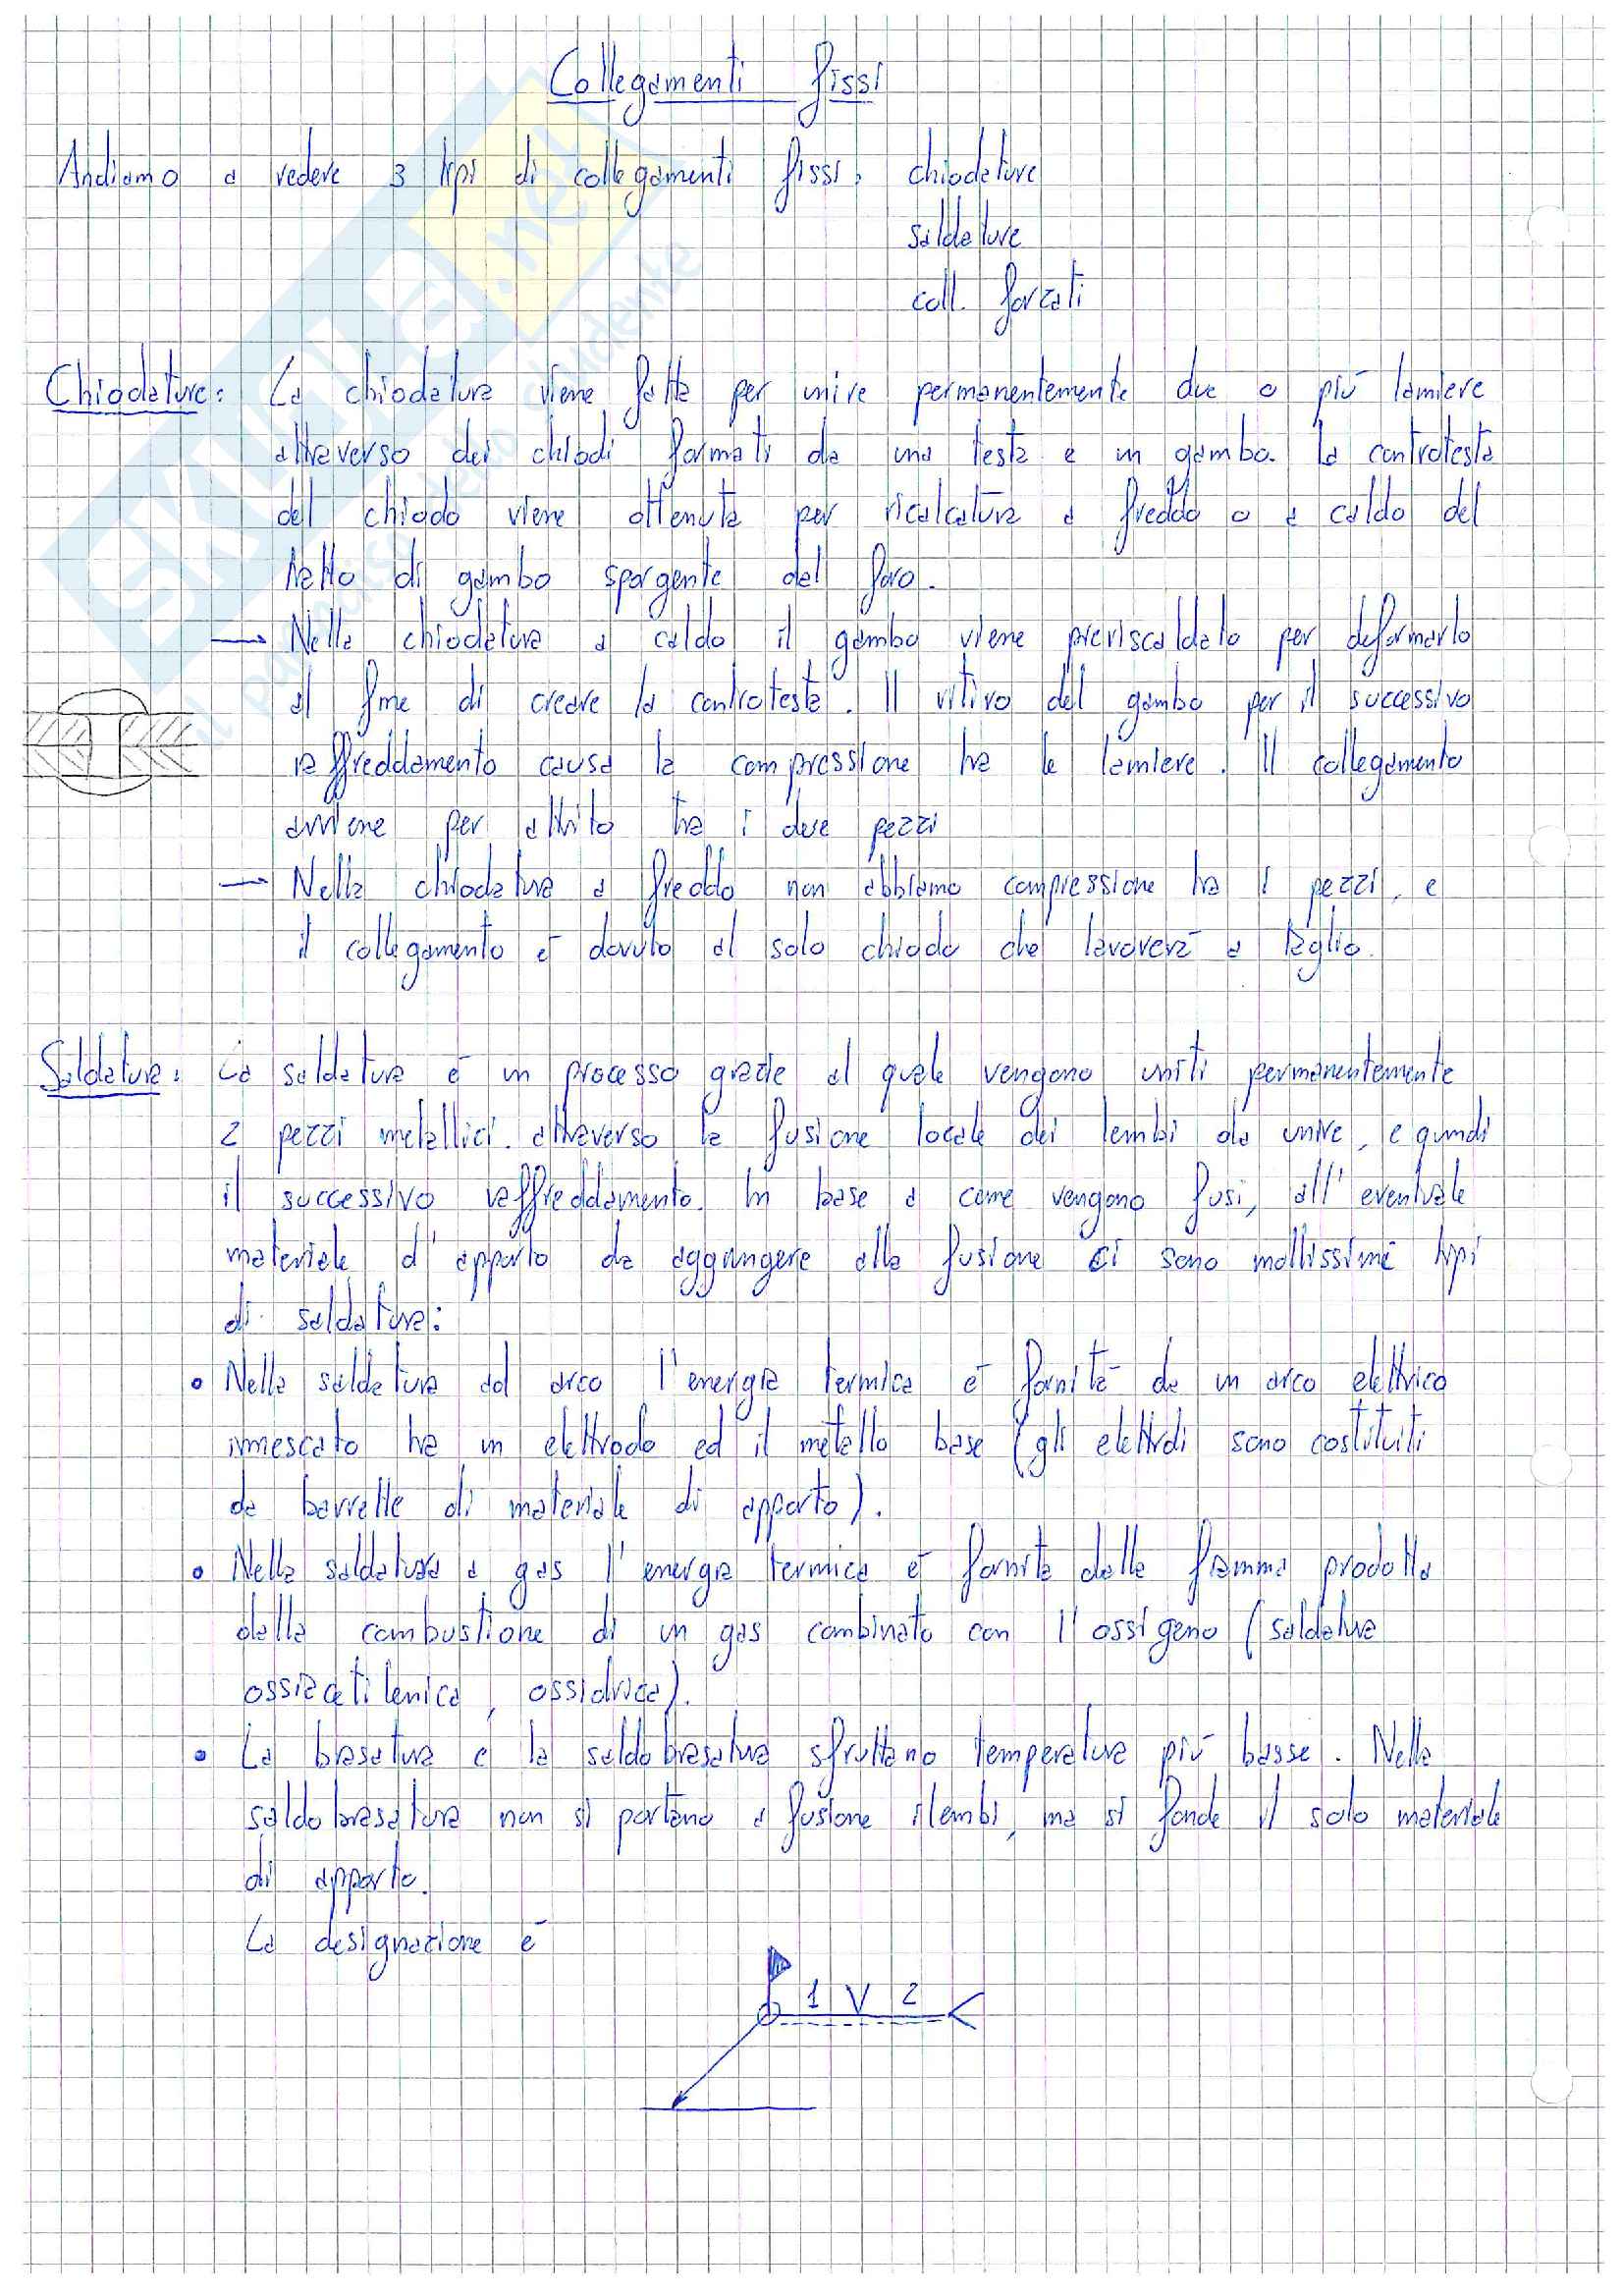 Collegamenti fissi
Andiamo a vedere 3 tipi di collegamenti fissi: chiodature
saldature
coll. forzati
Chiodature: La chiodatura viene fatta per unire permanentemente due o più lamiere
attraverso dei chiodi formati da una testa e un gambo. La controtesta
del chiodo viene ottenuta per ricalcatura a freddo o a caldo del
tratto di gambo sporgente dal foro.
→ Nella chiodatura a caldo il gambo viene preriscaldato per deformarlo
al fine di creare la controtesta. Il ritiro del gambo per il successivo
raffreddamento causa la compressione tra le lamiere. Il collegamento
avviene per attrito tra i due pezzi
→ Nella chiodatura a freddo non abbiamo compressione tra i pezzi, e
il collegamento è dovuto al solo chiodo che lavorerà a taglio.
Saldatura: La saldatura è un processo grazie al quale vengono uniti permanentemente
2 pezzi metallici. attraverso la fusione locale dei lembi da unire, e quindi
il successivo raffreddamento. In base a come vengono fusi, all'eventuale
materiale d'apporto da aggiungere alla fusione ci sono moltissimi tipi
di saldatura:
• Nella saldatura ad arco l'energia termica è fornita da un arco elettrico
innescato tra un elettrodo ed il metallo base (gli elettrdi sono costituiti
da barrette di materiale di apporto).
• Nella saldatura a gas l'energia termica è fornita dalla fiamma prodotta
dalla combustione di un gas combinato con l'ossigeno (saldatura
ossiacetilenica, ossidrica).
• La brasatura e la saldobrasatura sfruttano temperature più basse. Nella
saldobrasatura non si portano a fusione i lembi, ma si fonde il solo materiale
di apporto.
La designazione è
1 V 2
SKUOLA.net
il paradiso dello studente